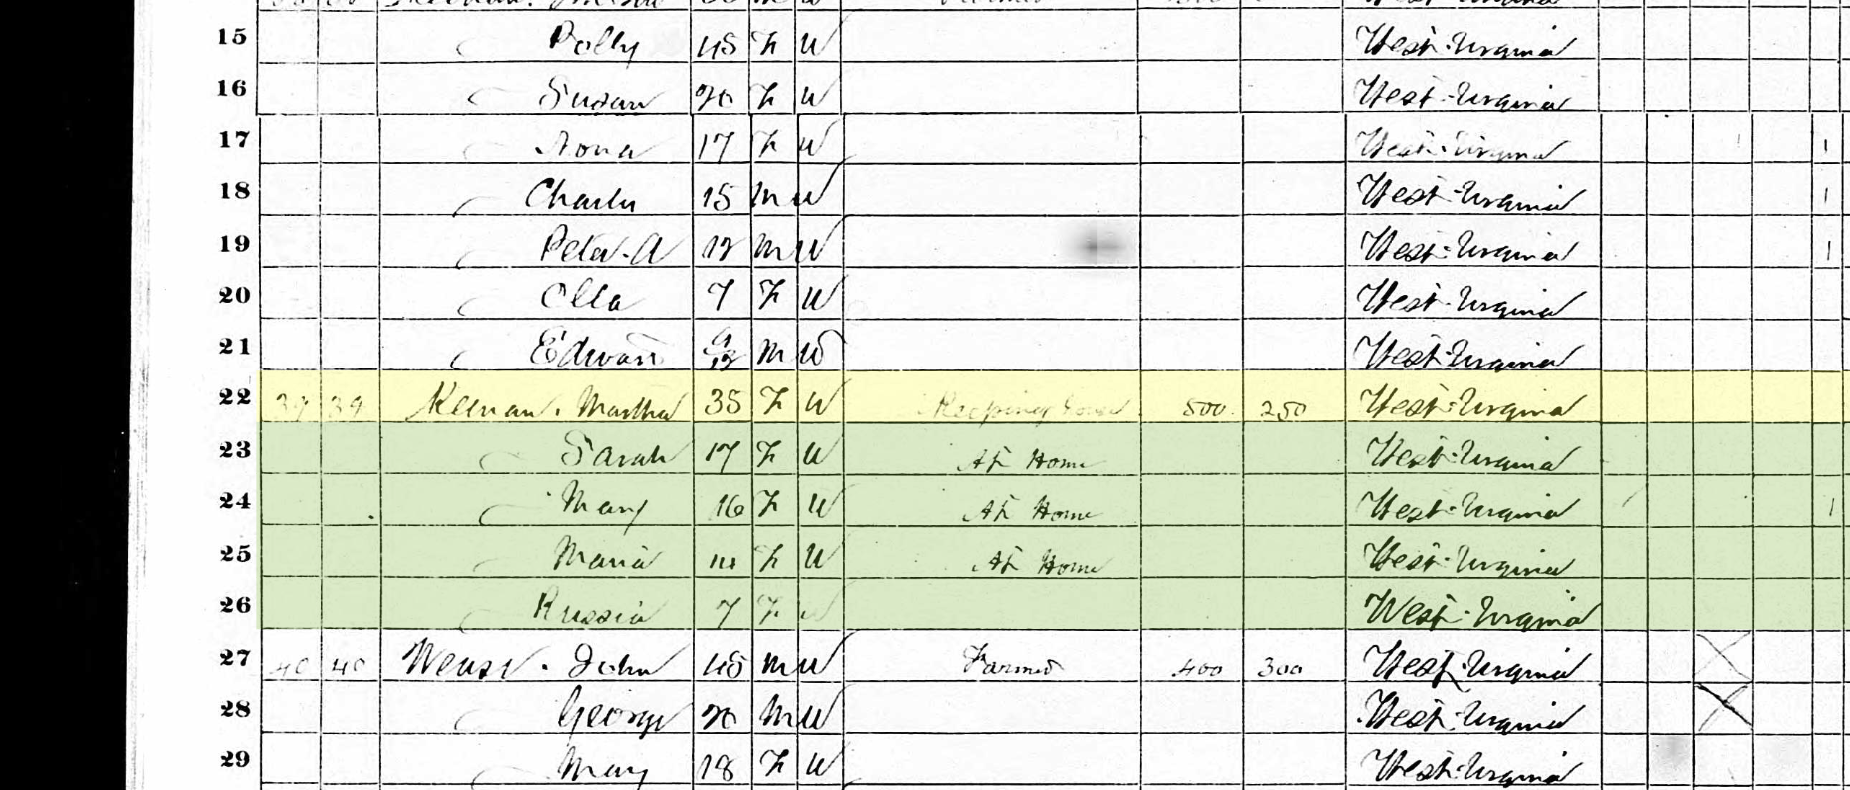 15 Polly 45 F W West Virginia
16 Susan 20 F W West Virginia
17 17 F W West Virginia 1
18 Charles 15 M W West Virginia 1
19 Peter. A 12 M W West Virginia 1
20 Ella 7 F W West Virginia
21 Edward M W West Virginia
22 39 39 Keenan. Martha 35 F W Keeping House 500 250 West Virginia
23 Sarah 17 F W At Home West Virginia
24 Mary 16 F W At Home West Virginia 1
25 Maria 14 F W At Home West Virginia
26 Russia 7 F W West Virginia
27 40 40 John 45 M W Farmer 400 300 West Virginia
28 George 20 M W West Virginia
29 Mary 18 F W West Virginia